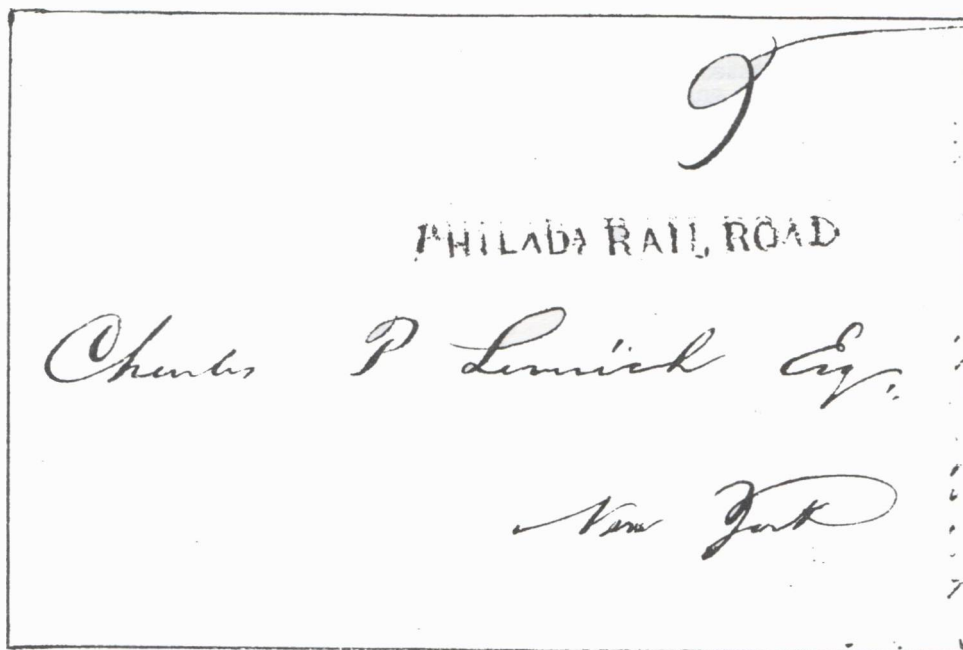 9
PHILADA RAIL ROAD
Charles P Leverich Esq.
New York